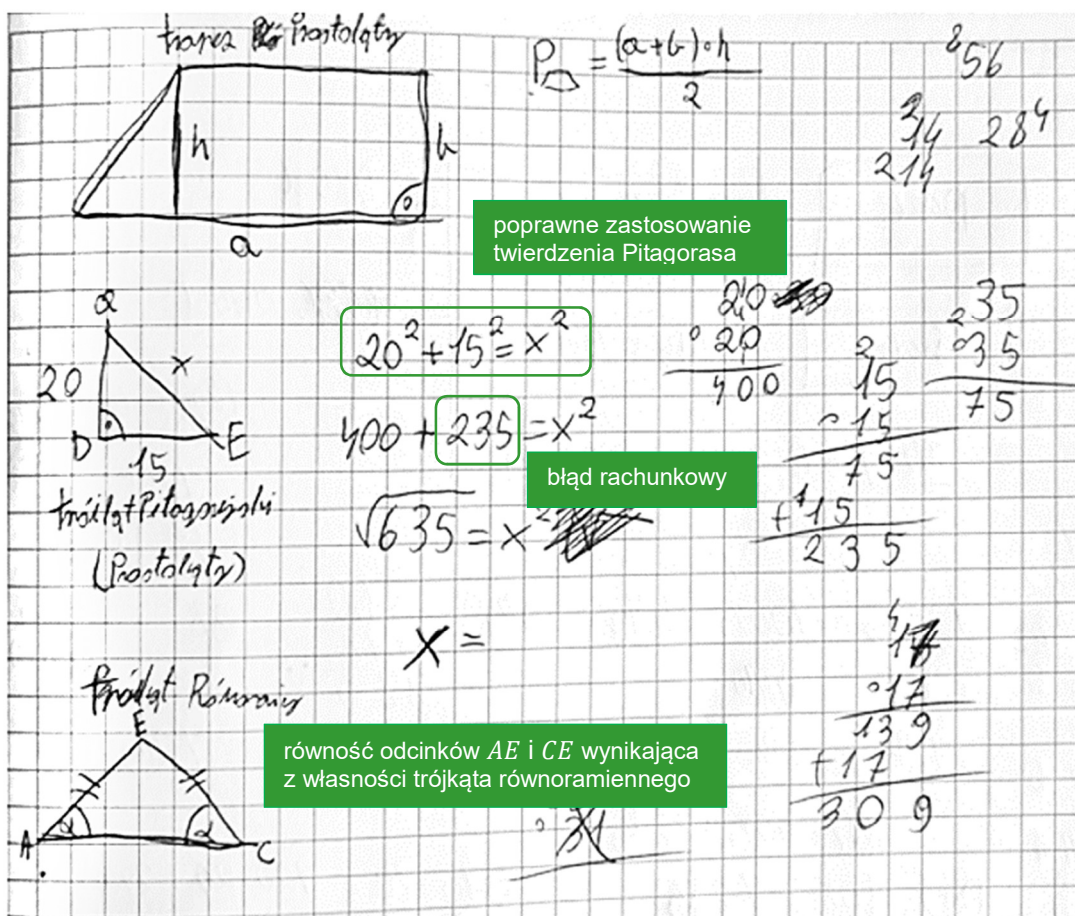 trapez Prostokątny
P = (a+b)·h
2
h
h
a
856
2
14 28 4
214
poprawne zastosowanie
twierdzenia Pitagorasa
Q
20
x
D
15
E
20² + 15² = x²
400 + 235 = x²
błąd rachunkowy
√635 = x
x =
trójkąt Pitagorejski
(Prostokątny)
20
·20
400
2
15
·15
75
+115
235
235
·35
75
4
17
·17
139
+17
309
trójkąt Równoramienny
E
A
α
α
C
równość odcinków AE i CE wynikająca
z własności trójkąta równoramiennego